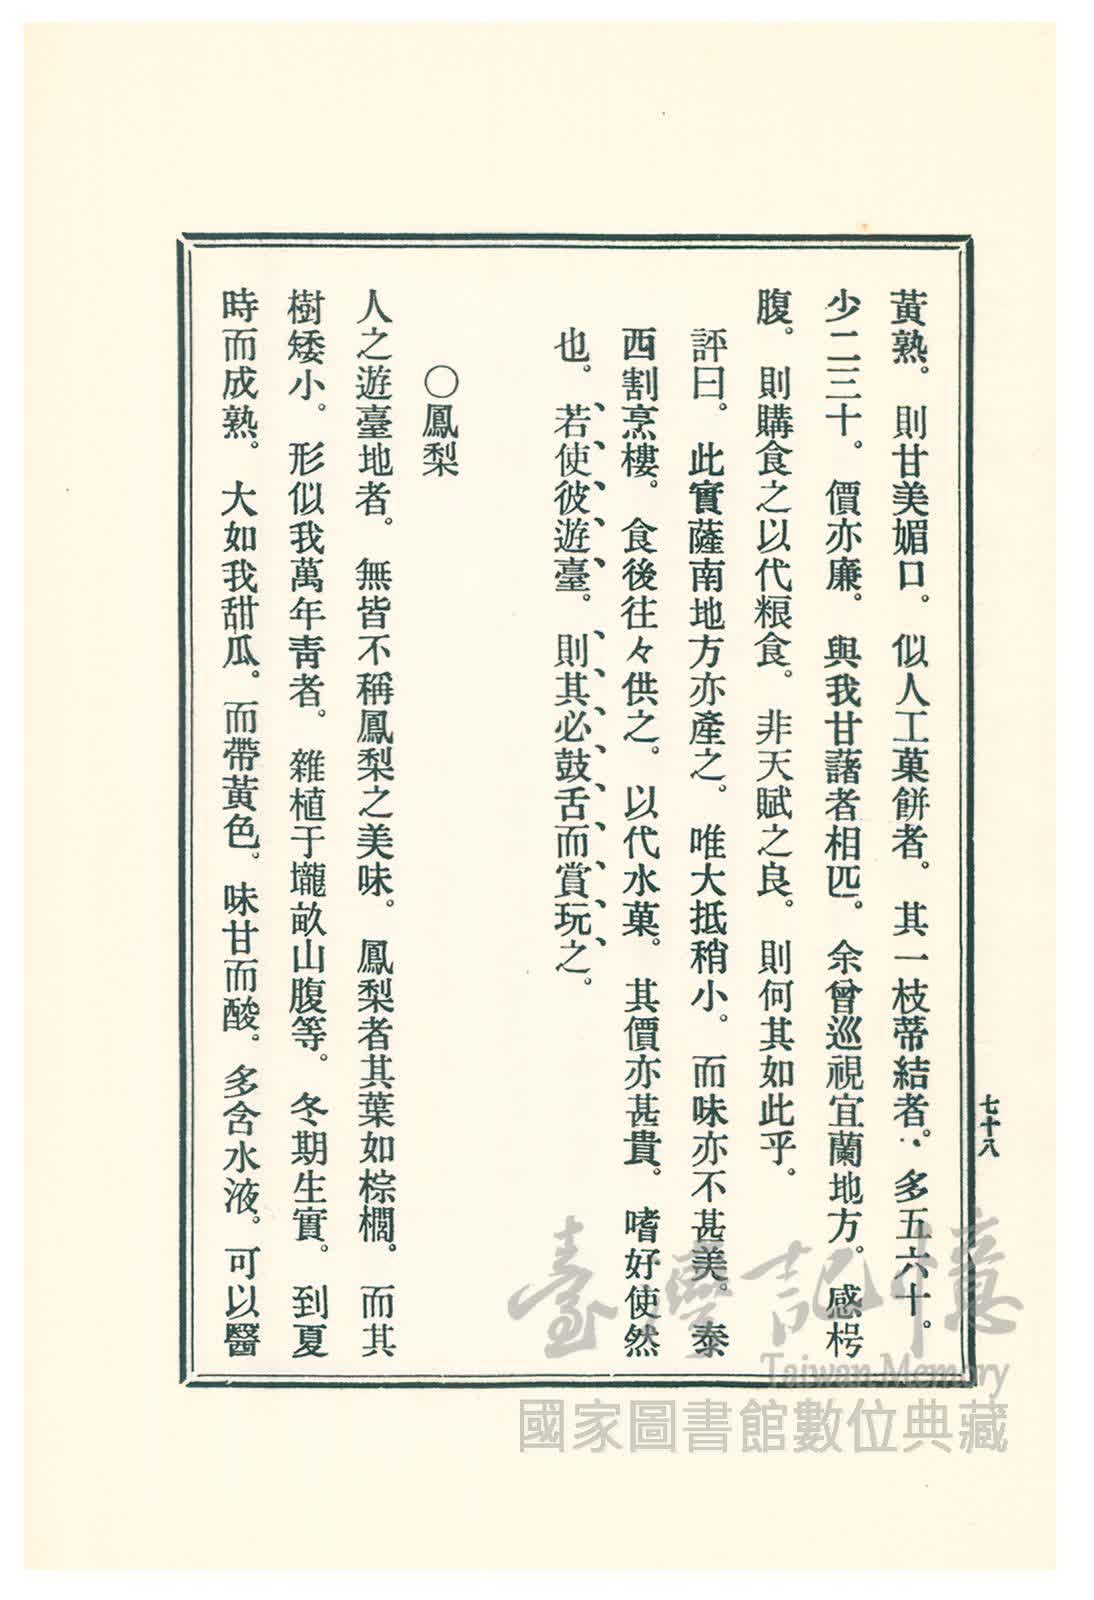 黃熟。則甘美媚口。似人工菓餅者。其一枝蒂結者。多五六十。
少二三十。價亦廉。與我甘藷者相匹。余曾巡視宜蘭地方。感枵
腹。則購食之以代粮食。非天賦之良。則何其如此乎。
評曰。此實薩南地方亦產之。唯大抵稍小。而味亦不甚美。泰
西割烹樓。食後往々供之。以代水菓。其價亦甚貴。嗜好使然
也。若使彼遊臺。則其必鼓舌而賞玩之。
〇鳳梨
人之遊臺地者。無皆不稱鳳梨之美味。鳳梨者其葉如棕櫚。而其
樹矮小。形似我萬年靑者。雜植于壠畝山腹等。冬期生實。到夏
時而成熟。大如我甜瓜。而帶黃色。味甘而酸。多含水液。可以醫
七十八
臺灣記憶
Taiwan Memory
國家圖書館數位典藏